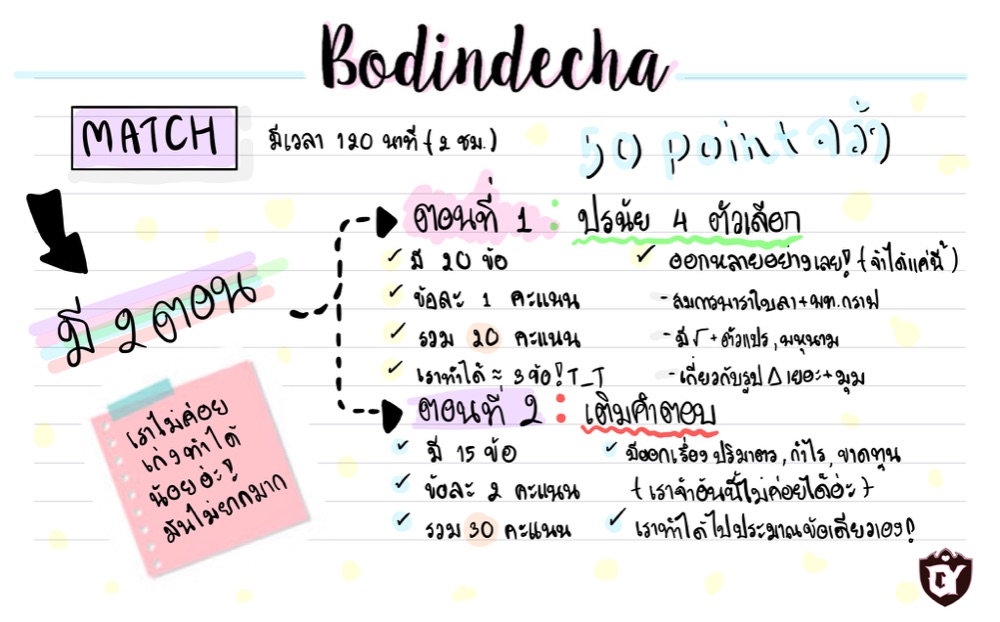 Bodindecha
MATCH
มีเวลา 120 นาที (2 ชม.)
50 point จ้า
มี 2 ตอน
ตอนที่ 1 : ปรนัย 4 ตัวเลือก
✓ มี 20 ข้อ
✓ ข้อละ 1 คะแนน
✓ รวม 20 คะแนน
✓ เราทำได้ ≈ 3 ข้อ! T_T
✓ ออกหลายอย่างเลย! (จำได้แค่นี้)
- สมการพาราโบลา + พท.กราฟ
- มี √ + ตัวแปร, พหุนาม
- เกี่ยวกับรูป △ เยอะ + มุม
ตอนที่ 2 : เติมคำตอบ
✓ มี 15 ข้อ
✓ ข้อละ 2 คะแนน
✓ รวม 30 คะแนน
✓ มีออกเรื่อง ปริมาตร, กำไร, ขาดทุน
(เราจำอันนี้ไม่ค่อยได้อ่ะ)
✓ เราทำได้ไปประมาณข้อเดียวเอง!
เราไม่ค่อย
เก่งทำได้
น้อยอ่ะ!
มันไม่ยากมาก